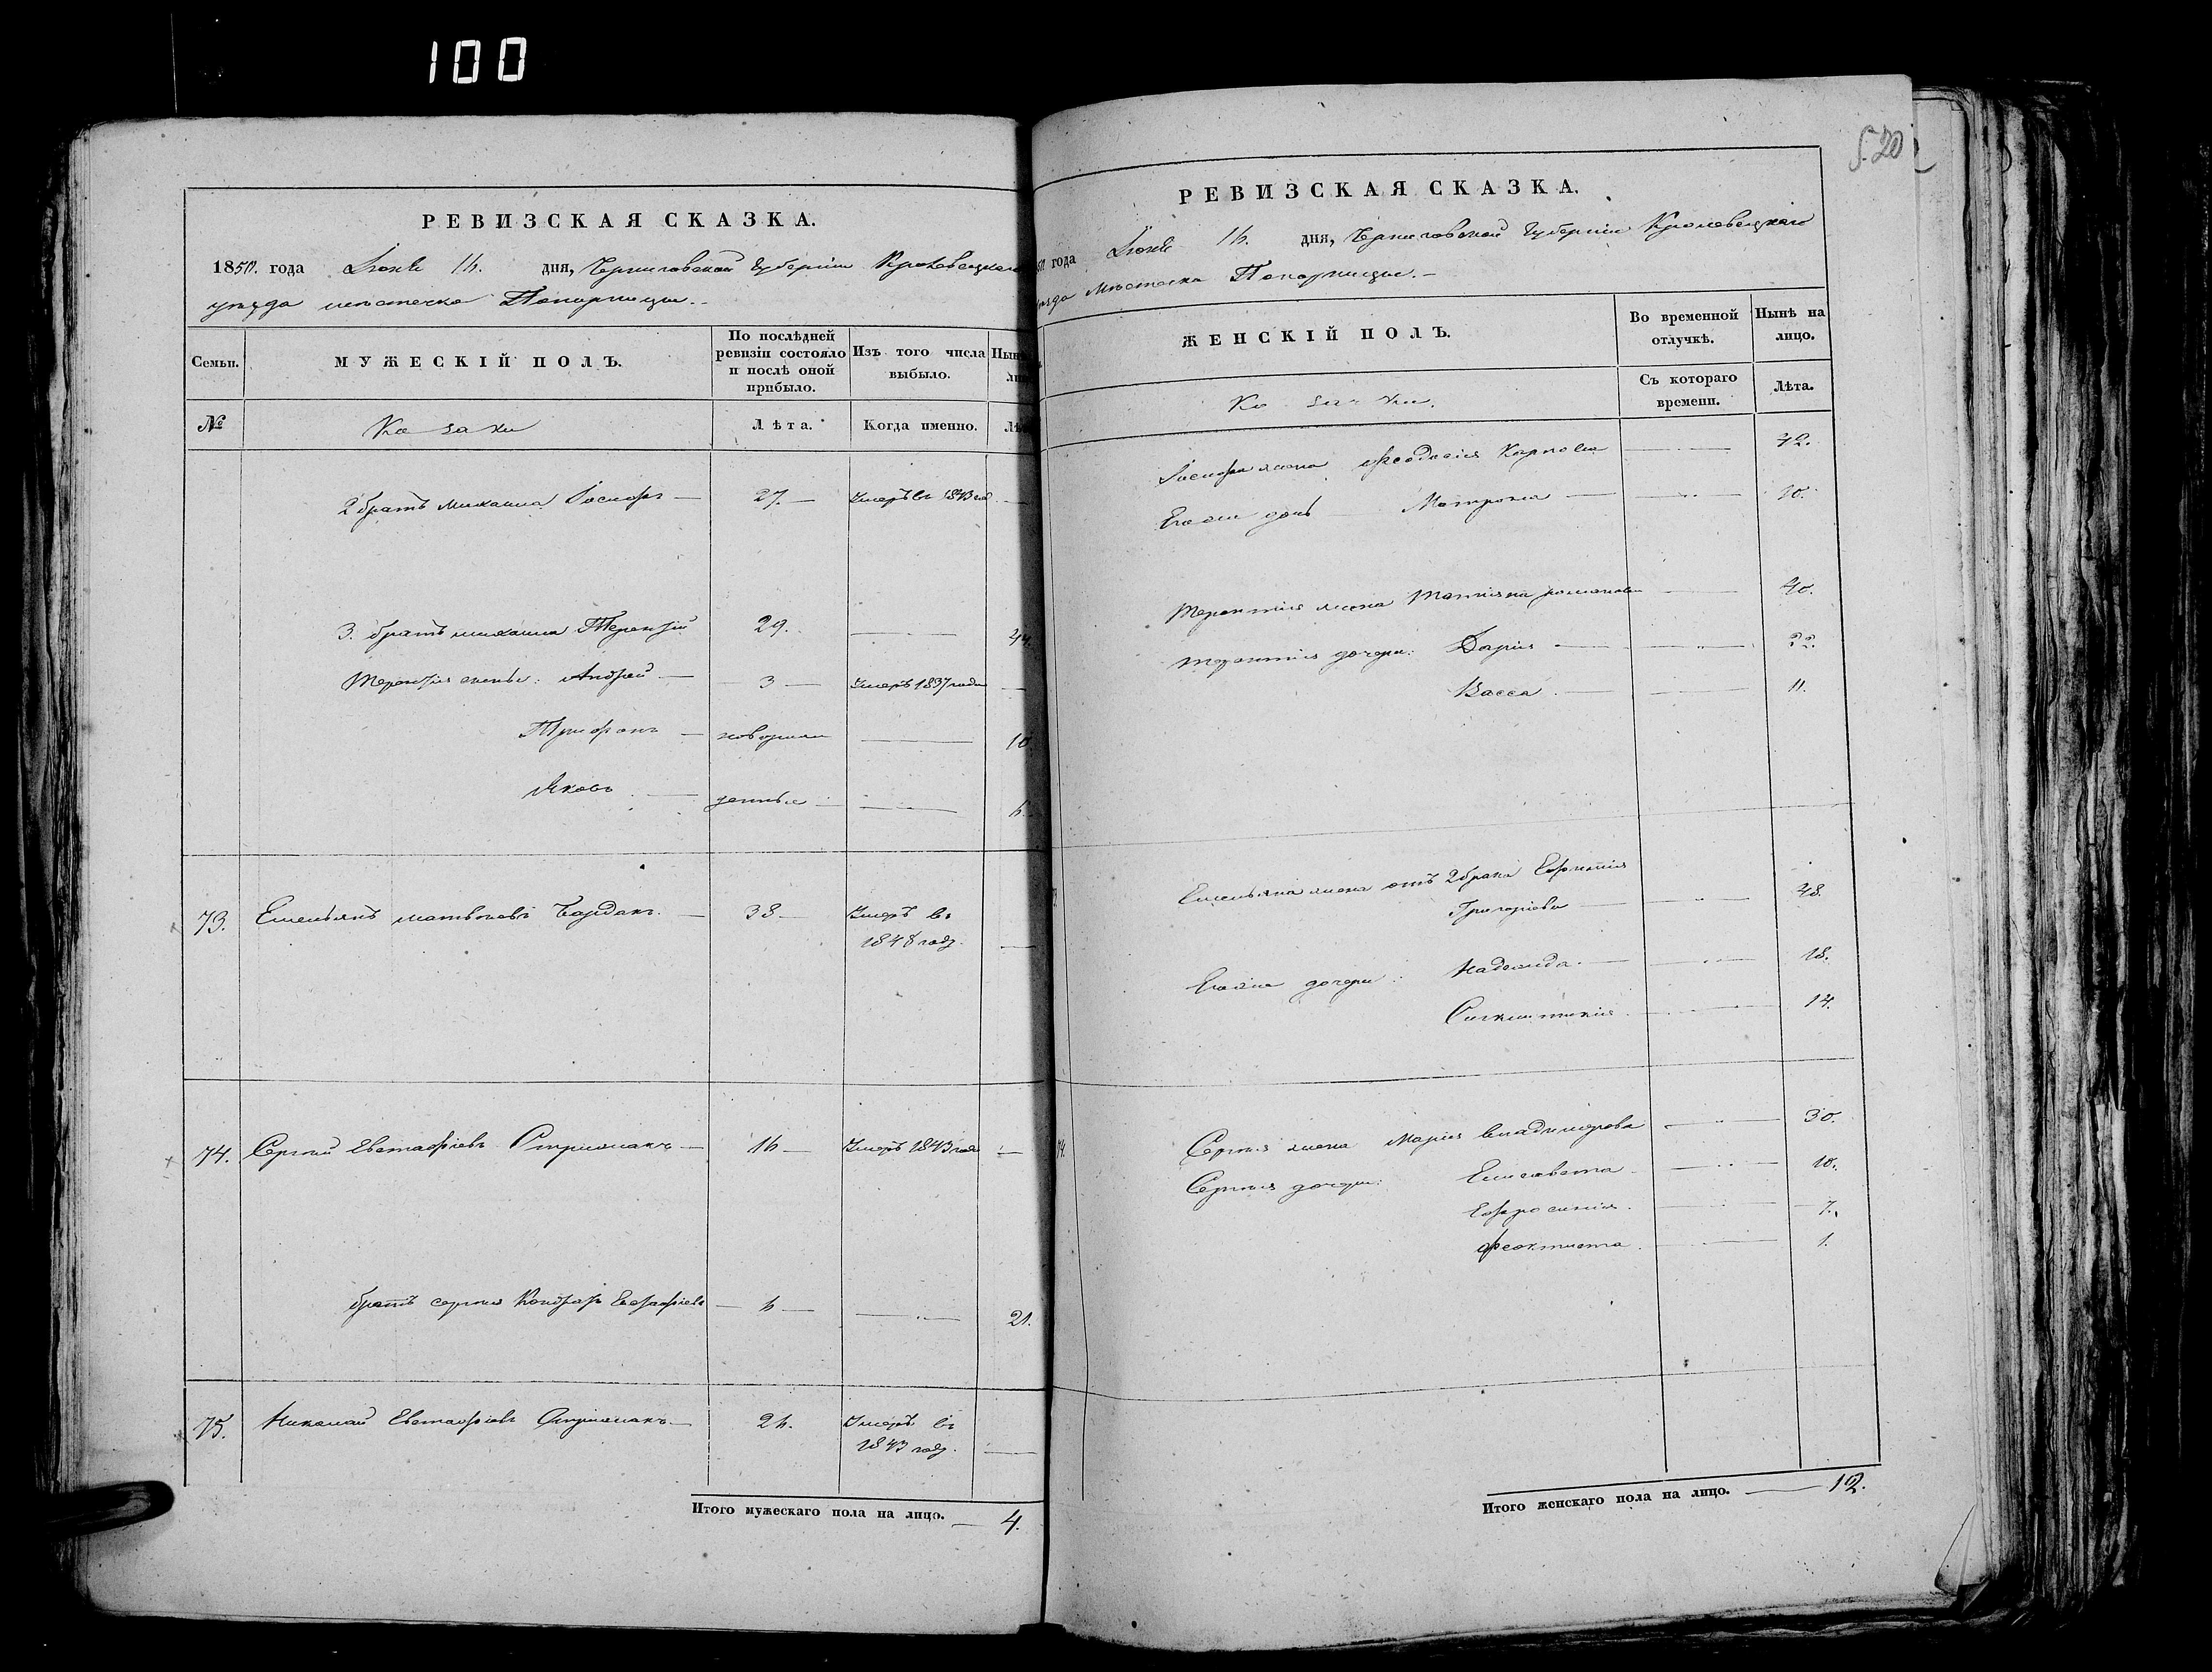 100
РЕВИЗСКАЯ СКАЗКА.
1850. года Июня 16. дня, Черниговской Губерніи Кролевецкаго
уѣзда мѣстечка Понорницы.
Семьи. МУЖЕСКІЙ ПОЛЪ. По послѣдней ревизіи состояло и послѣ оной прибыло. Изъ того числа выбыло.
№ Козаки Лѣта. Когда именно.
2 братъ михаила Іосифъ — 27. — Умеръ въ 1843 —
3. братъ михаила Терентій 29. — 44.
Терентія сыны: Андрей — 3 — Умеръ 1837 года —
Трифонъ — новорож — 10.
Яковъ — денные — 6.
73. Емельянъ матвѣевъ — 38 — Умеръ въ
1848 году. —
74. Сергѣй Евстафіевъ — 16 — Умеръ 1843 года —
братъ сергія Кондратъ — 6 — 21.
75. Николай Евстафіевъ — 26. Умеръ въ
1843 году. —
Итого мужескаго пола на лицо. — 4.
520
РЕВИЗСКАЯ СКАЗКА.
года Июня 16. дня, Черниговской Губерніи Кролевецкаго
мѣстечка Понорницы.
ЖЕНСКІЙ ПОЛЪ. Во временной отлучкѣ. Нынѣ на лицо.
Козаки. Съ котораго времени. Лѣта.
Іосифа жена Феодосія Карпова — 42.
Его дочь Матрона — 10.
Терентія жена Татіяна романова — 40.
Терентія дочери: Дарія — 22.
Васса — 11.
Емельяна жена отъ 2 брака
Григорьева — 48.
дочери: Надежда — 18.
Синклитикія — 14.
74. Сергія жена Марія Владимирова — 30.
Сергія дочери: Елисавета — 10.
Ефросинія — 7.
Феоктиста — 1.
Итого женскаго пола на лицо. — 12.